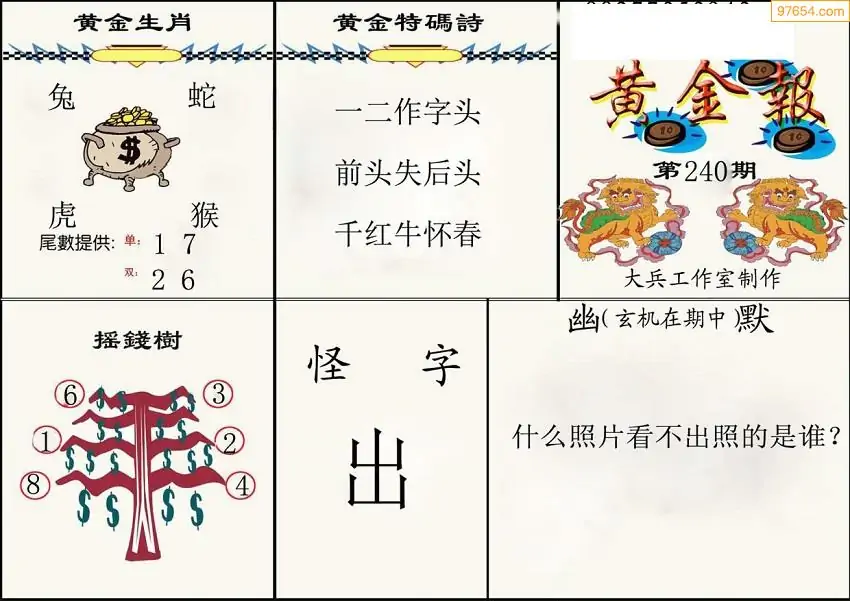 97654.com
黄金生肖
兔 蛇
$
虎 猴
尾數提供: 单: 1 7
双: 2 6
黄金特碼詩
一二作字头
前头失后头
千红牛怀春
黄金報
10
10
10
第240期
大兵工作室制作
摇錢樹
6 3
1 2
8 4
怪 字
出
幽(玄机在期中)默
什么照片看不出照的是谁?